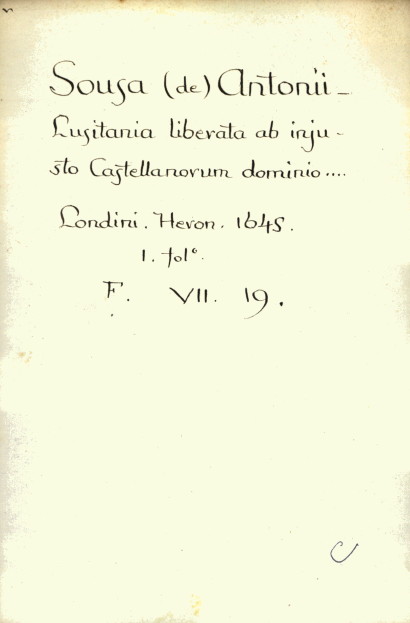 Sousa (de) Antonii —
Lusitania liberata ab inju-
sto Castellanorum dominio....
Londini. Heron. 1645.
1. folº.
F. VII. 19.
C